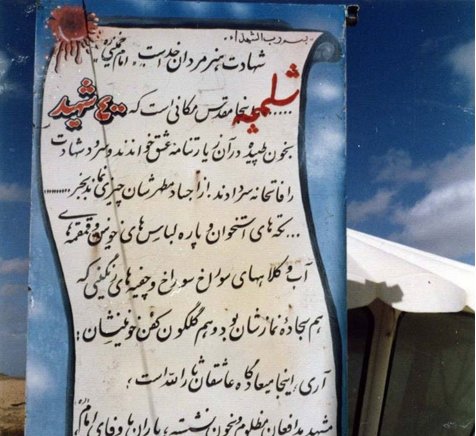 بسم رب الشهداء
شهادت هنر مردان خداست. امام خمینی ره
شلمچه
..... اینجا مقدس مکانی است که ۴۰۰ شهید
بخون طپیده در آن زیارتنامه عشق خواندند و سرود شهادت
را فاتحانه سردادند! از اجساد مطهرشان چیزی نماند بجز ........
... تکه های استخوان و پاره لباس های خونین و قمقمه های
آب و کلاههای سوراخ سوراخ و چفیه های رنگینی که
هم سجاده نمازشان بود و هم گلگون کفن خونینشان:
آری، اینجا میعادگاه عاشقان ثارالله است،
مشهد مدافعان مظلوم و بخون نشسته، یاران با وفای امام ره